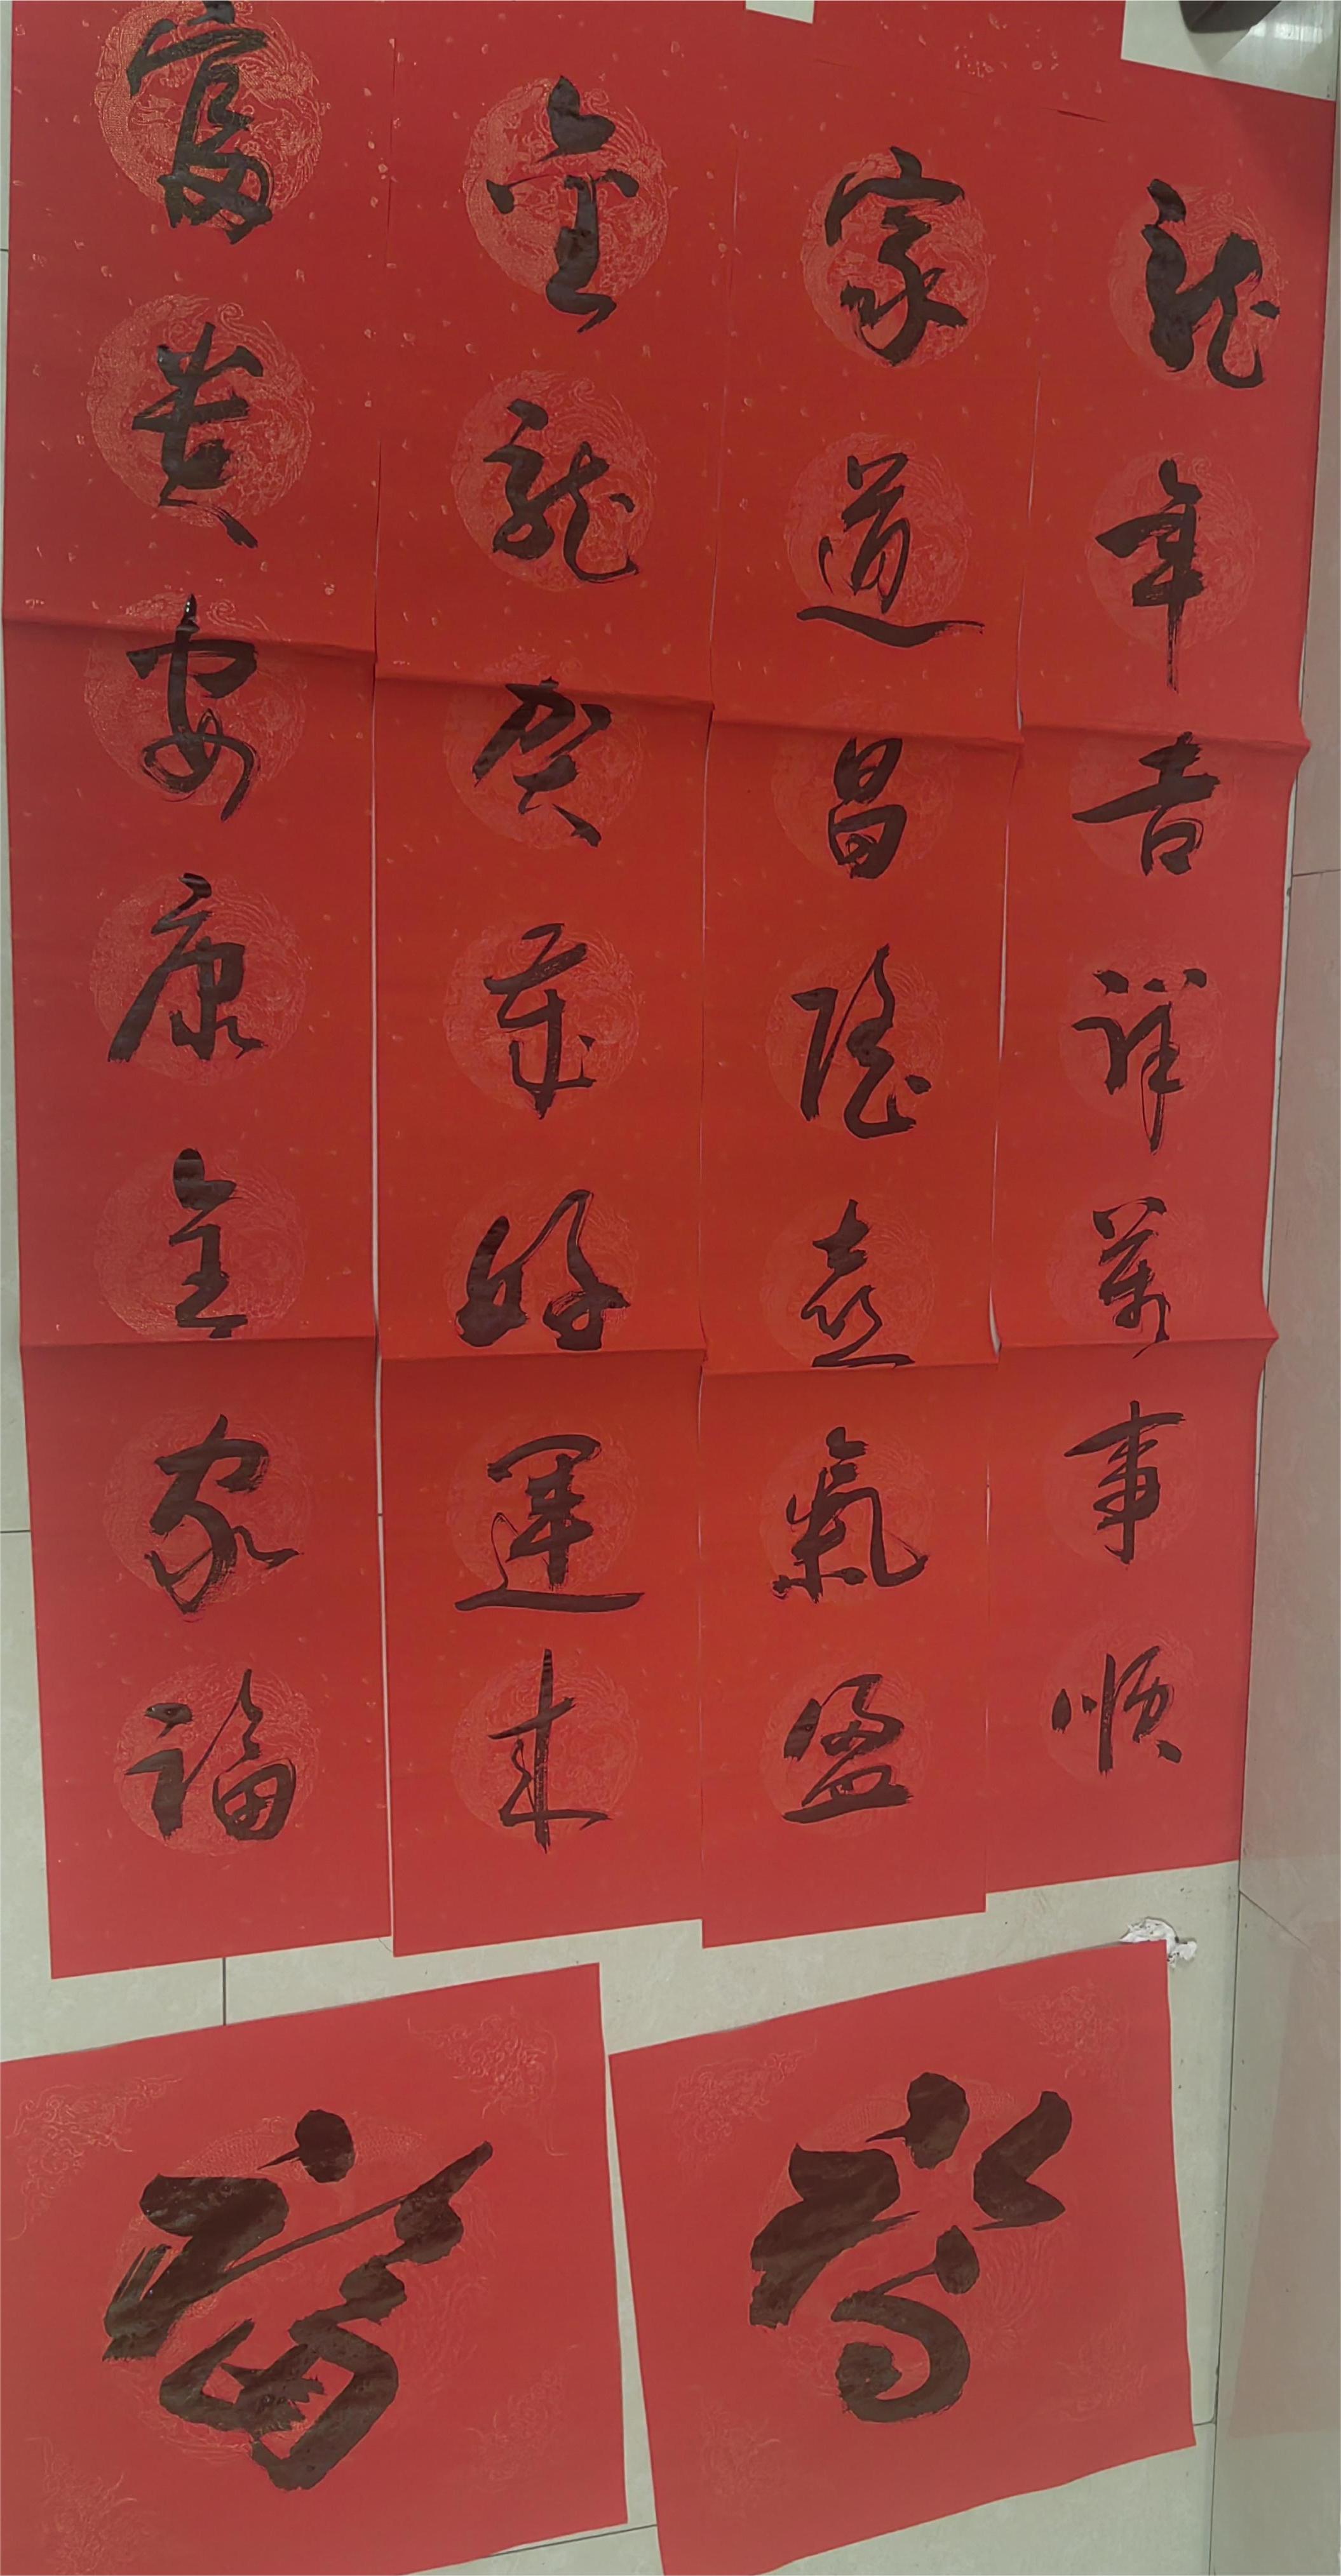 龍年吉祥萬事順
家道昌隆喜氣盈
金龍賀歲好運來
富貴安康全家福
富